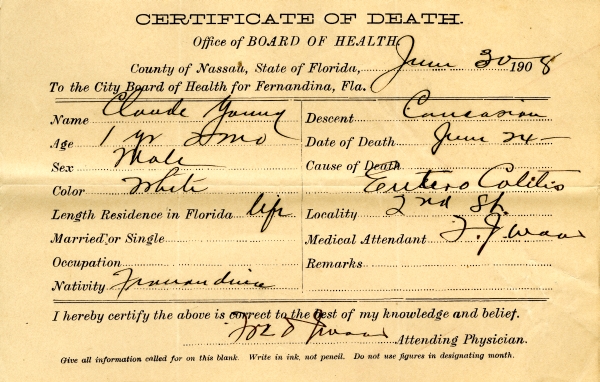 CERTIFICATE OF DEATH.
Office of BOARD OF HEALTH,
County of Nassau, State of Florida, June 30 1908
To the City Board of Health for Fernandina, Fla.
Name Claude Young
Age 1 yr 2 mo
Sex Male
Color White
Length Residence in Florida life
Married or Single
Occupation
Nativity Fernandina
Descent Caucasian
Date of Death June 24
Cause of Death
Entero Colitis
Locality 2nd St.
Medical Attendant
Remarks
I hereby certify the above is correct to the best of my knowledge and belief.
Attending Physician.
Give all information called for on this blank. Write in ink, not pencil. Do not use figures in designating month.